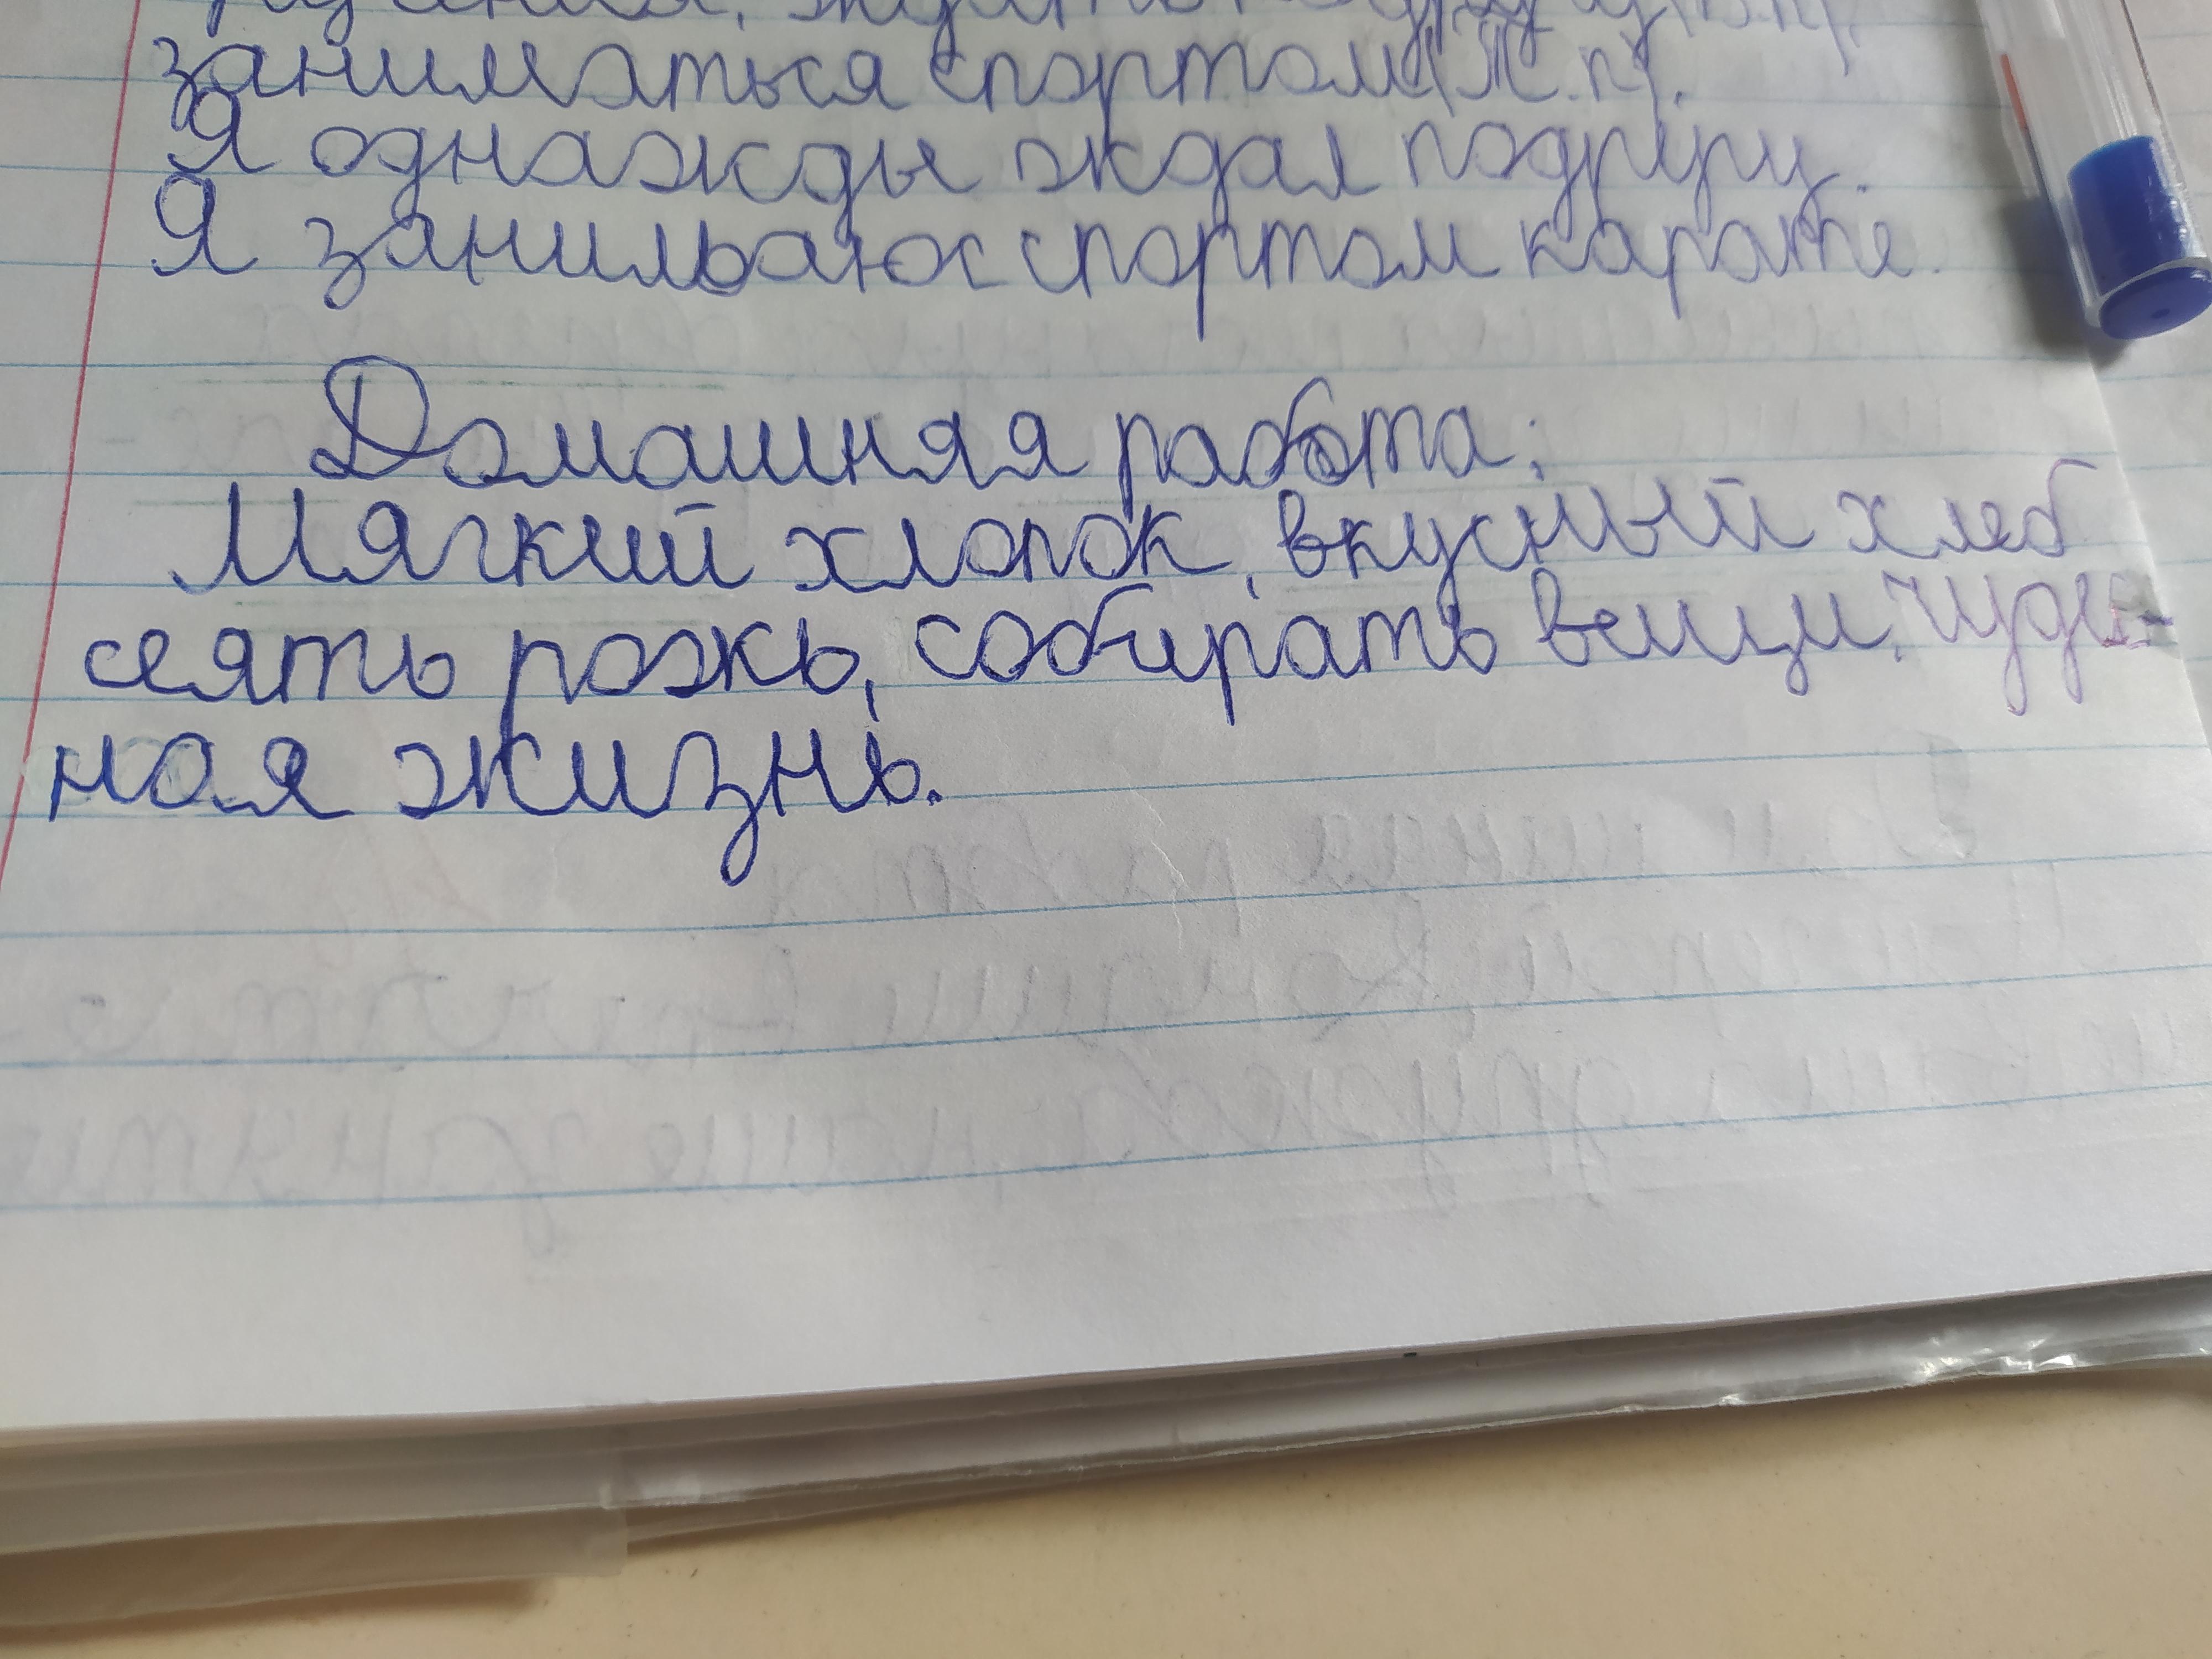 ждать подругу (В.п),
заниматься спортом (Т.п).
Я однажды ждал подругу.
Я занимьаюс спортом карате.
Домашняя работа:
Мягкий хлопок, вкусный хлеб
сеять рожь, собирать вещи, чудес-
ная жизнь.